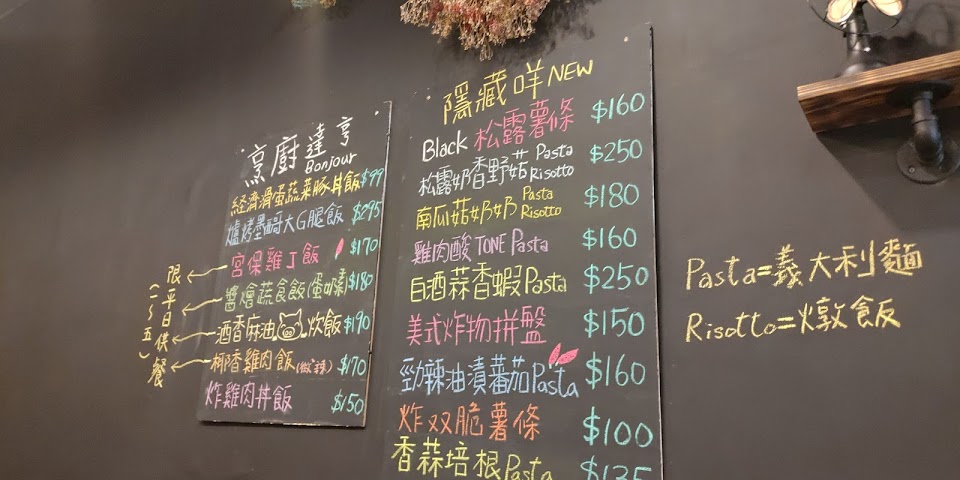 烹廚達亨
Bonjour
経済滑蛋蔬菜豚丼飯$99
爐烤墨西哥大G腿飯 $295
宮保雞丁飯 $170
醬燴蔬食飯(蛋奶素)$180
酒香麻油 炊飯$190
椰香雞肉飯(微辣) $170
炸雞肉丼飯 $150
限平日供餐
(一~五)
隱藏咩NEW
Black 松露薯條 $160
松露奶香野菇 Pasta Risotto $250
南瓜菇奶奶 Pasta Risotto $180
雞肉酸TONE Pasta $160
白酒蒜香蝦Pasta $250
美式炸物拼盤 $150
勁辣油漬蕃茄Pasta $160
炸双脆薯條 $100
香蒜培根Pasta $135
Pasta=義大利麵
Risotto=燉飯